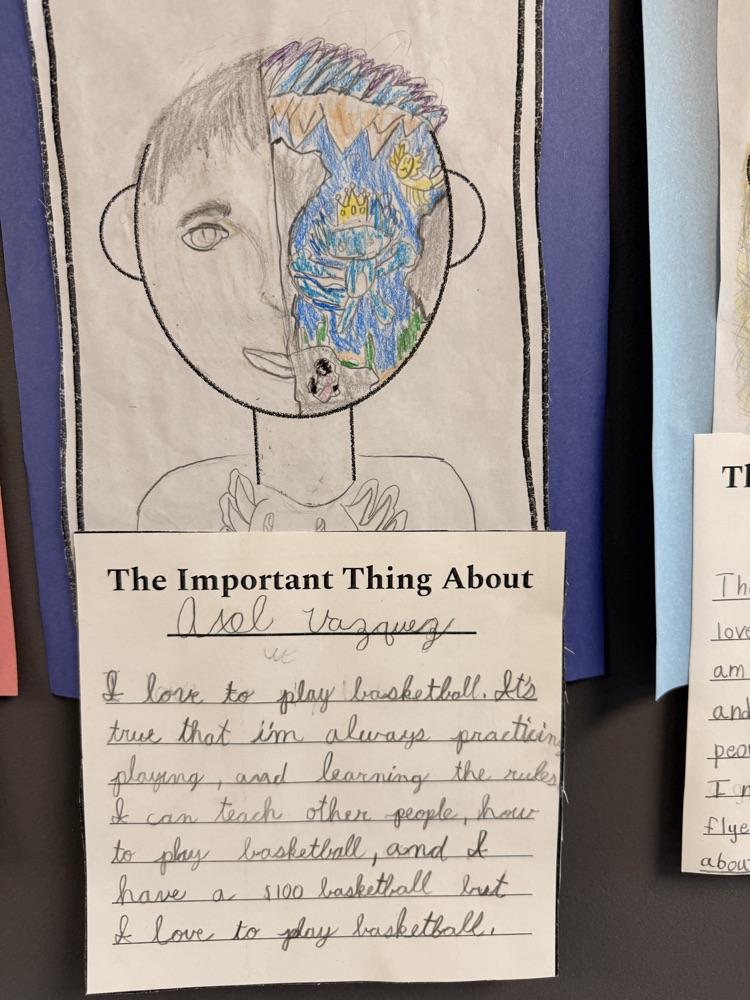 The Important Thing About
Axel Vazquez
I love to play basketball. It's
true that i'm always practicing
playing, and learning the rules
I can teach other people, how
to play basketball, and I
have a $100 basketball but
I love to play basketball.
Th
Th
love
am
and
peo
I
flye
about